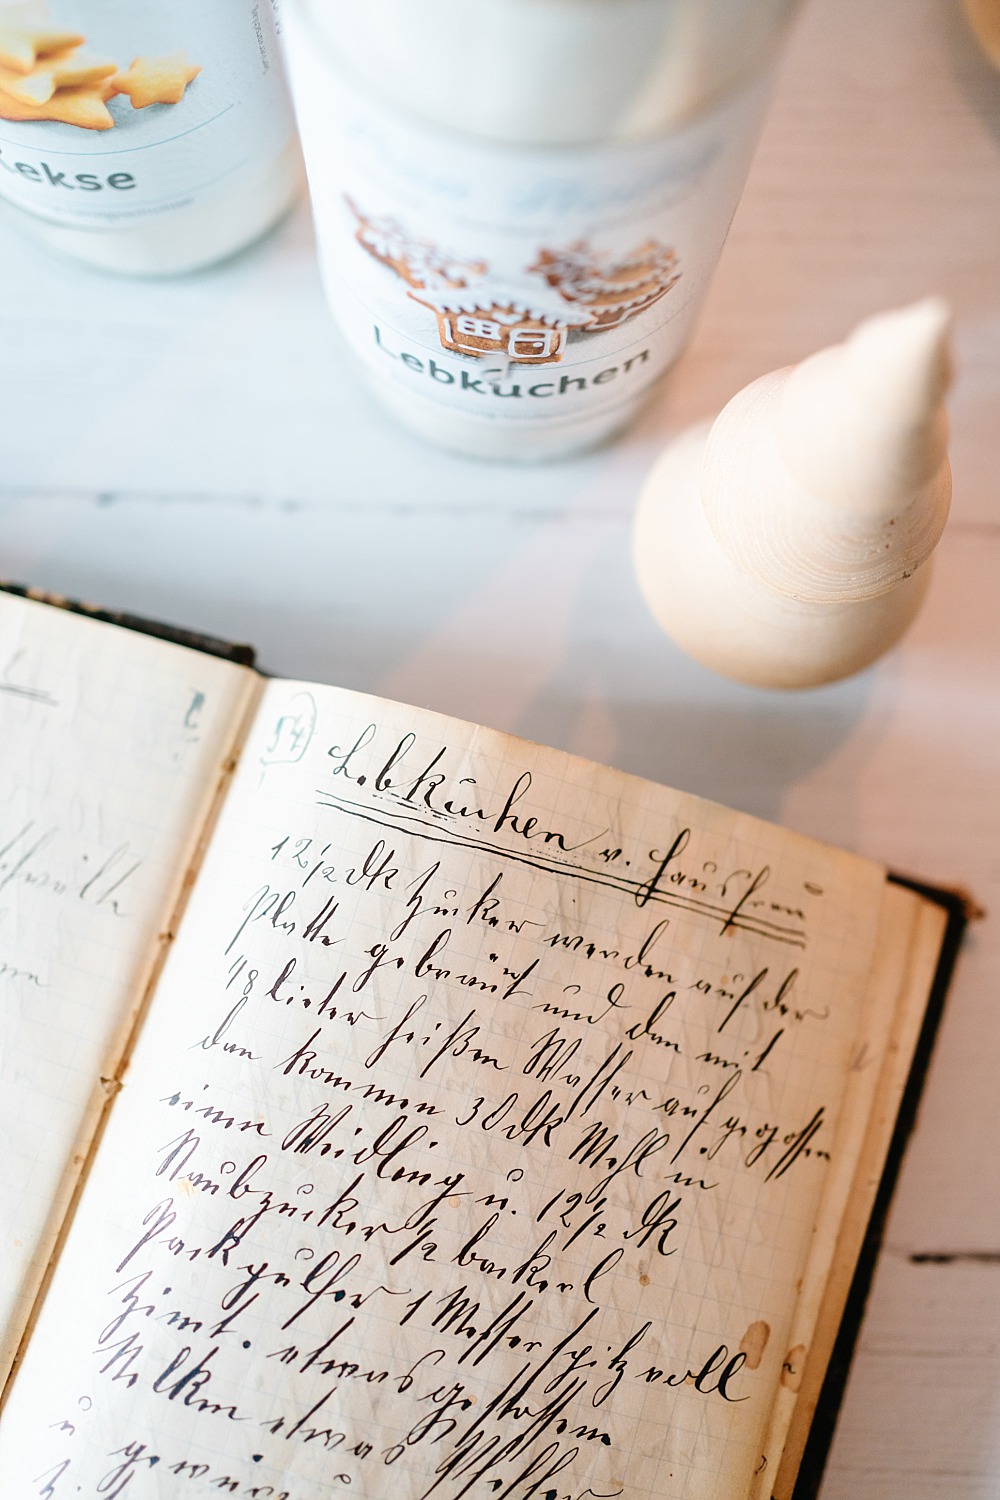 Kekse
Lebkuchen
54
Lebkuchen v. Hausfrau
12 1/2 dk Zucker werden auf der
Platte gebräunt und dan mit
1/8 Lieter heißen Wasser aufgegossen
dan kommen 30 dk Mehl in
einen Weidling u. 12 1/2 dk
Staubzucker 1/2 backerl
Packpulfer 1 Messerspitz voll
Zimt. etwas gestossene
Nelken etwas Pfeffer
u